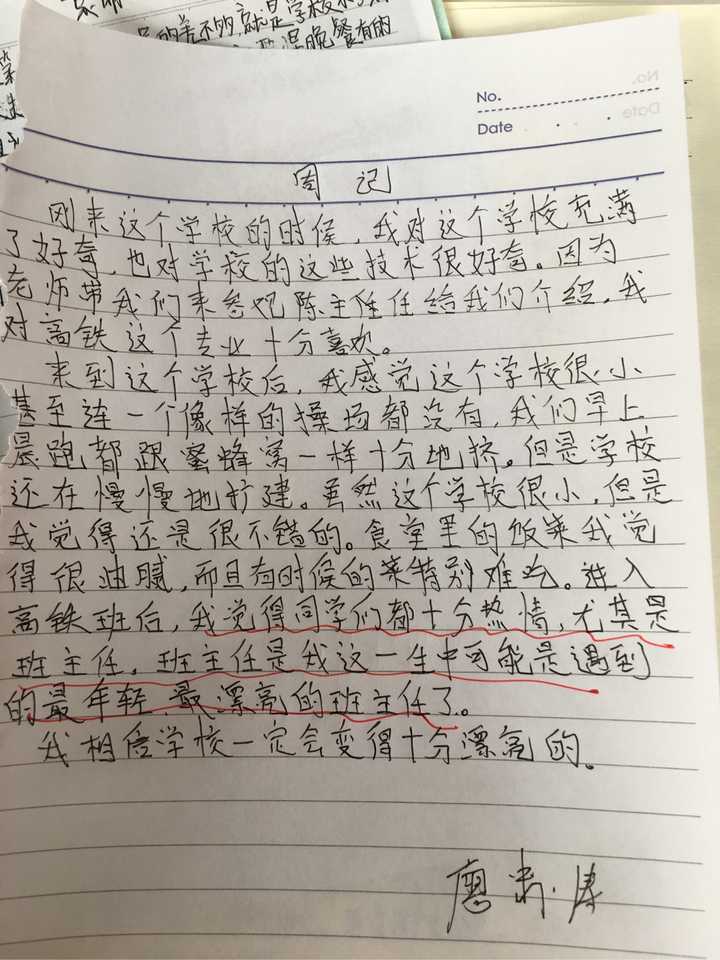 的差不多,就是学校
晚餐有的
No.
Date
周记
刚来这个学校的时候,我对这个学校充满
了好奇,也对学校的这些技术很好奇。因为
老师带我们来参观陈主任任给我们介绍,我
对高铁这个专业十分喜欢。
来到这个学校后,我感觉这个学校很小
甚至连一个像样的操场都没有,我们早上
晨跑都跟蜜蜂窝一样十分地挤。但是学校
还在慢慢地扩建。虽然这个学校很小,但是
我觉得还是很不错的。食堂里的饭菜我觉
得很油腻,而且有时候的菜特别难吃。进入
高铁班后,我觉得同学们都十分热情,尤其是
班主任,班主任是我这一生中可能是遇到
的最年轻,最漂亮的班主任了。
我相信学校一定会变得十分漂亮的。
廖 涛